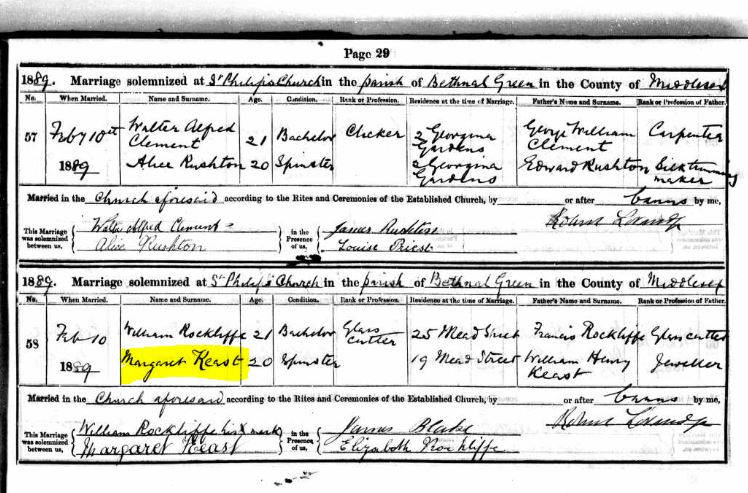 Page 29
1889. Marriage solemnized at St Philip's Church in the parish of Bethnal Green in the County of Middlesex
No. When Married. Name and Surname. Age. Condition. Rank or Profession. Residence at the time of Marriage. Father's Name and Surname. Rank or Profession of Father.
57 Feby 10th 1889 Walter Alfred Clement 21 Bachelor Clicker 2 Georgina Gardens George William Clement Carpenter
Alice Rushton 20 Spinster 2 Georgina Gardens Edward Rushton Silk trimming maker
Married in the Church aforesaid according to the Rites and Ceremonies of the Established Church, by or after banns by me,
This Marriage was solemnized between us, Walter Alfred Clement Alice Rushton in the Presence of us, James Rushton Louise Priest
1889. Marriage solemnized at St Philip's Church in the parish of Bethnal Green in the County of Middlesex
No. When Married. Name and Surname. Age. Condition. Rank or Profession. Residence at the time of Marriage. Father's Name and Surname. Rank or Profession of Father.
58 Feb 10 1889 William Rockliffe 21 Bachelor Glass cutter 25 Mead Street Francis Rockliffe Glass cutter
Margaret Keast 20 Spinster 19 Mead Street William Henry Keast Jeweller
Married in the Church aforesaid according to the Rites and Ceremonies of the Established Church, by or after banns by me,
This Marriage was solemnized between us, William Rockliffe his X mark Margaret Keast in the Presence of us, James Blake Elizabeth Rockliffe